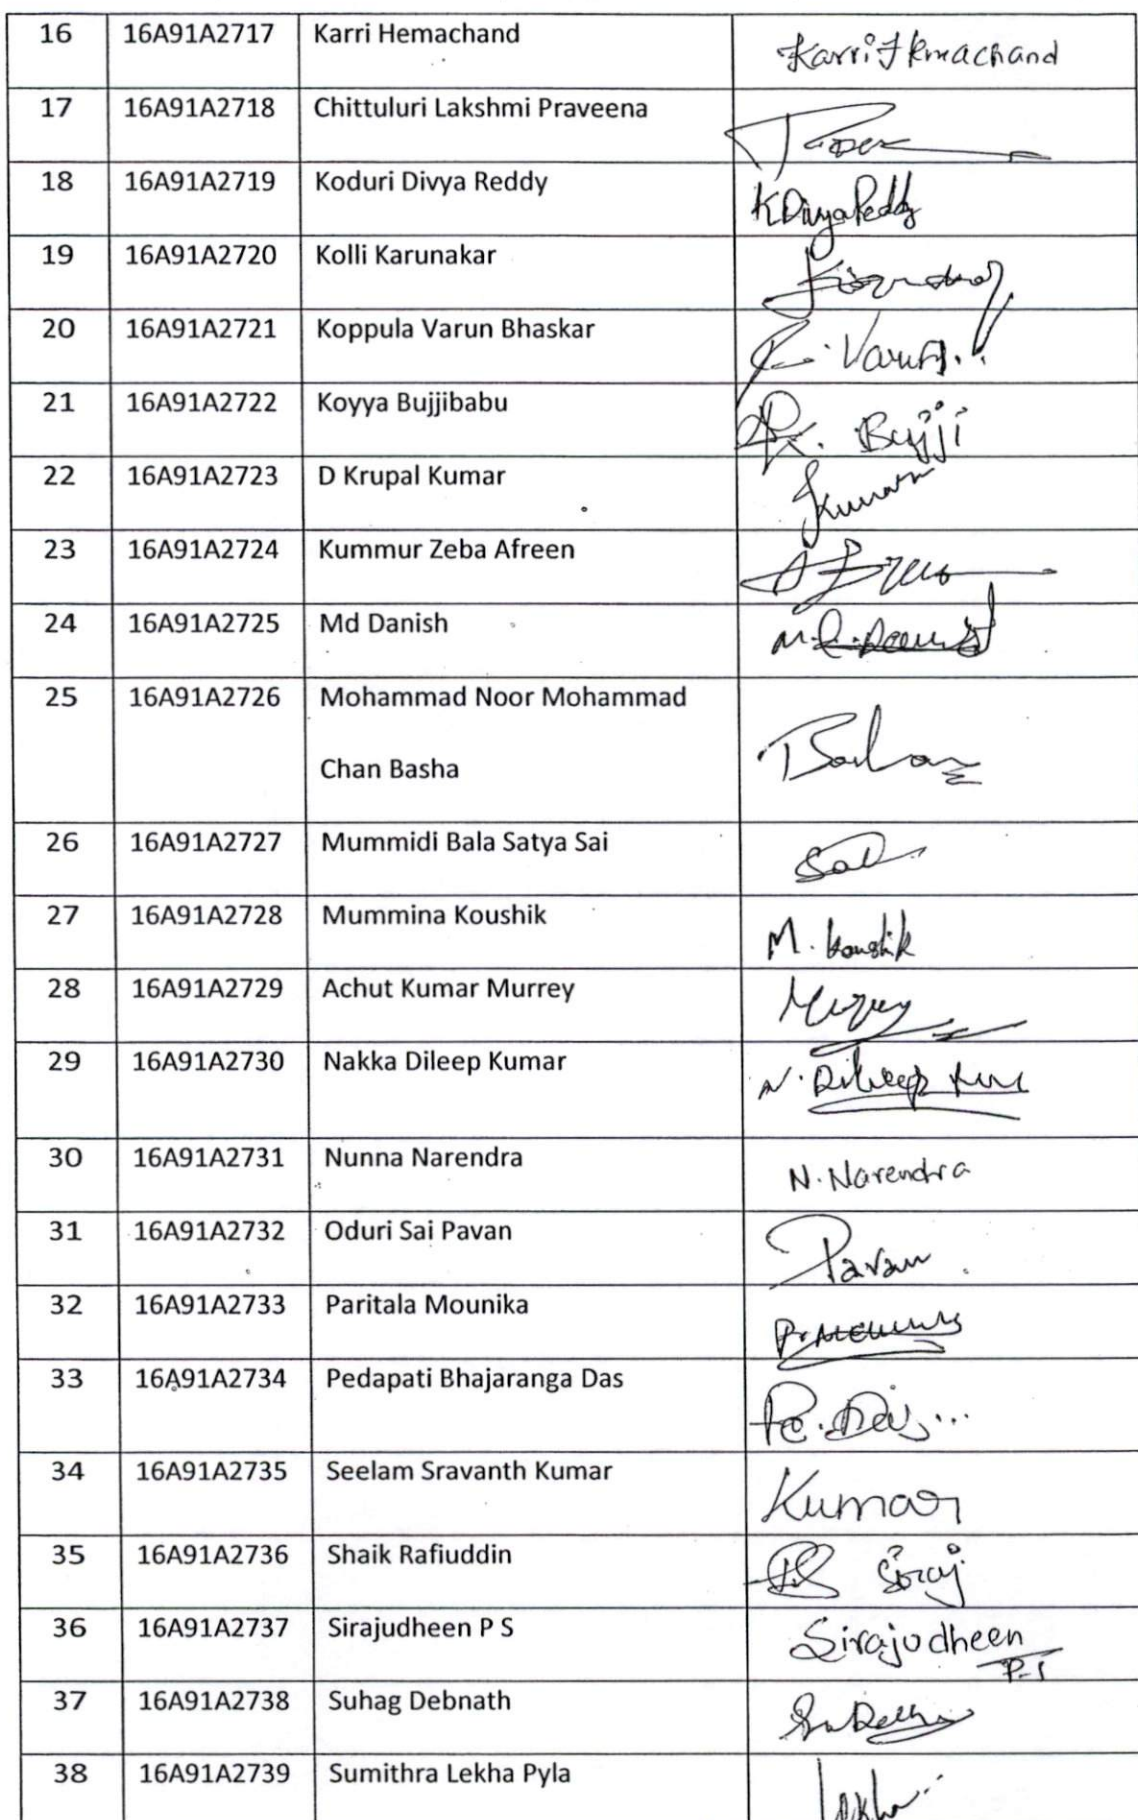 16 16A91A2717 Karri Hemachand Karri Hemachand
17 16A91A2718 Chittuluri Lakshmi Praveena
18 16A91A2719 Koduri Divya Reddy K Divya Reddy
19 16A91A2720 Kolli Karunakar
20 16A91A2721 Koppula Varun Bhaskar K. Varun.
21 16A91A2722 Koyya Bujjibabu K. Bujji
22 16A91A2723 D Krupal Kumar Kumar
23 16A91A2724 Kummur Zeba Afreen
24 16A91A2725 Md Danish
25 16A91A2726 Mohammad Noor Mohammad
Chan Basha
26 16A91A2727 Mummidi Bala Satya Sai Sai
27 16A91A2728 Mummina Koushik M. Koushik
28 16A91A2729 Achut Kumar Murrey Murrey
29 16A91A2730 Nakka Dileep Kumar N. Dileep
30 16A91A2731 Nunna Narendra N. Narendra
31 16A91A2732 Oduri Sai Pavan Pavan
32 16A91A2733 Paritala Mounika
33 16A91A2734 Pedapati Bhajaranga Das
34 16A91A2735 Seelam Sravanth Kumar Kumar
35 16A91A2736 Shaik Rafiuddin Siraj
36 16A91A2737 Sirajudheen P S Sirajudheen
37 16A91A2738 Suhag Debnath
38 16A91A2739 Sumithra Lekha Pyla